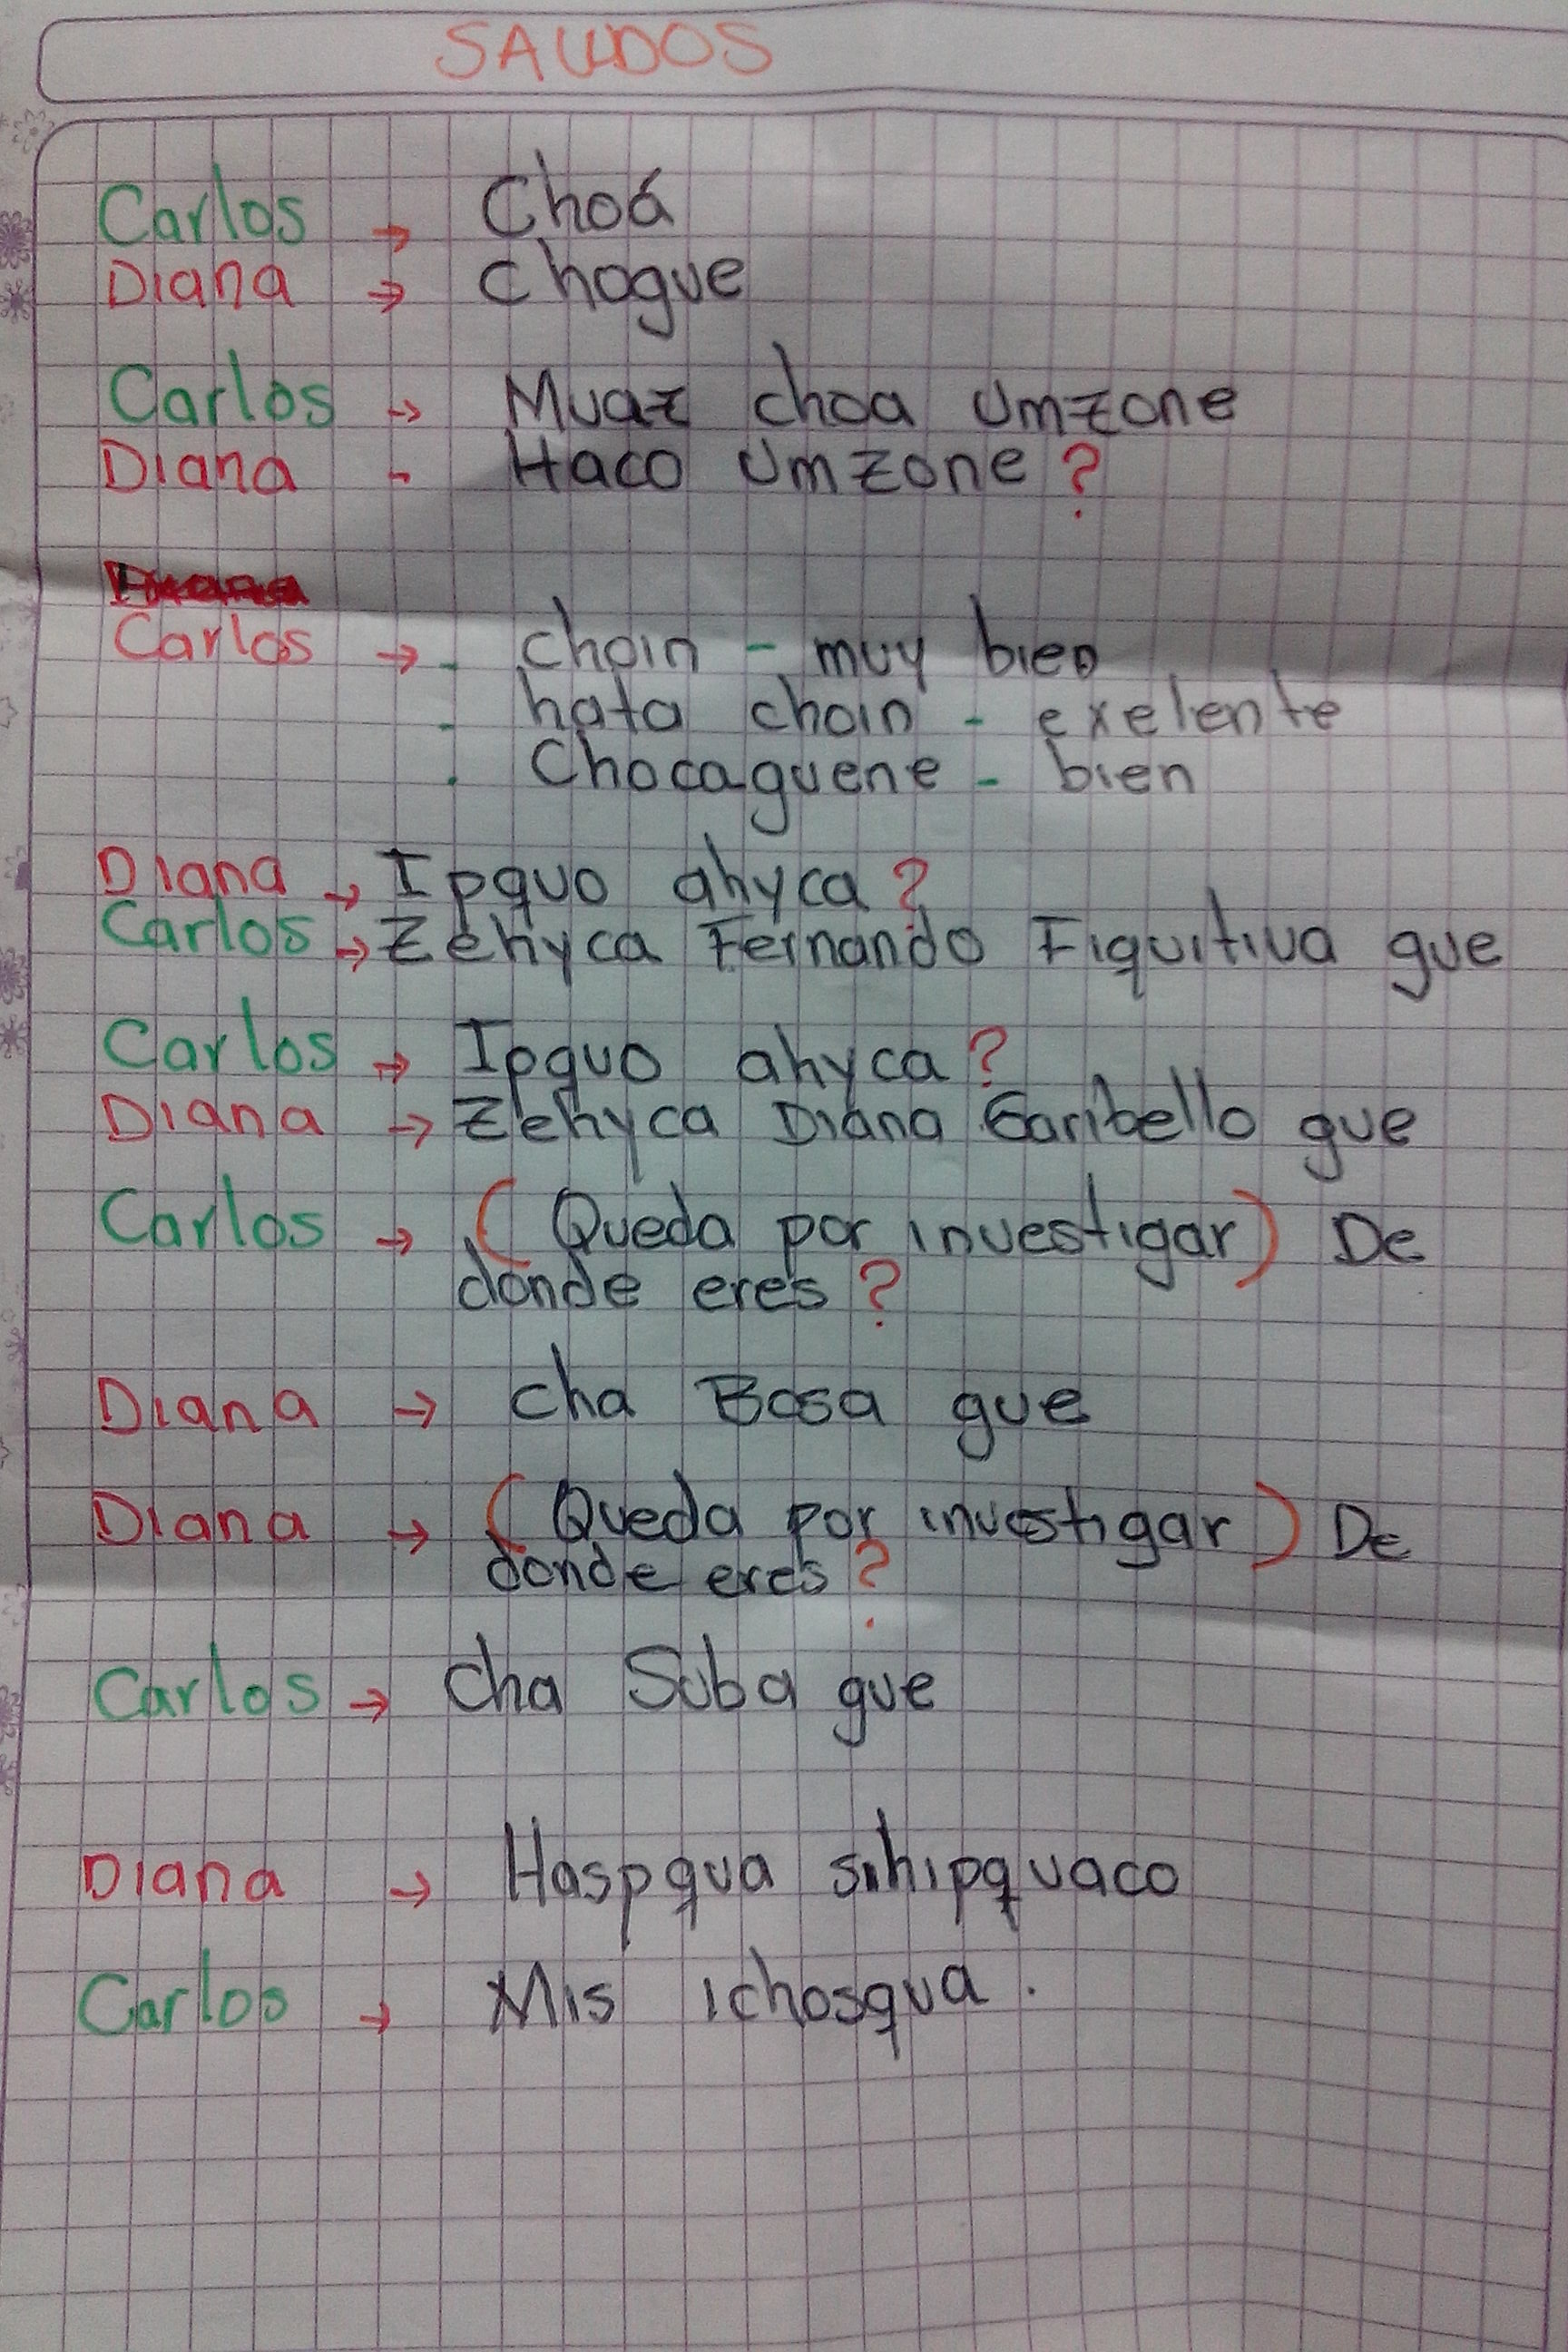 SALUDOS
Carlos → Choá
Diana → Chogue
Carlos → Muaz choa Umzone
Diana - Haco Umzone?
Carlos → - choin - muy bien
- hata choin - exelente
. Chocaguene - bien
Diana → Ipquo ahyca?
Carlos → Zehyca Fernando Fiquitiva gue
Carlos → Ipquo ahyca?
Diana → Zehyca Diana Garibello gue
Carlos → (Queda por investigar) De
donde eres?
Diana → cha Bosa gue
Diana → (Queda por investigar) De
donde eres?
Carlos → cha Suba gue
Diana → Haspqua sihipquaco
Carlos → Mis ichosqua.